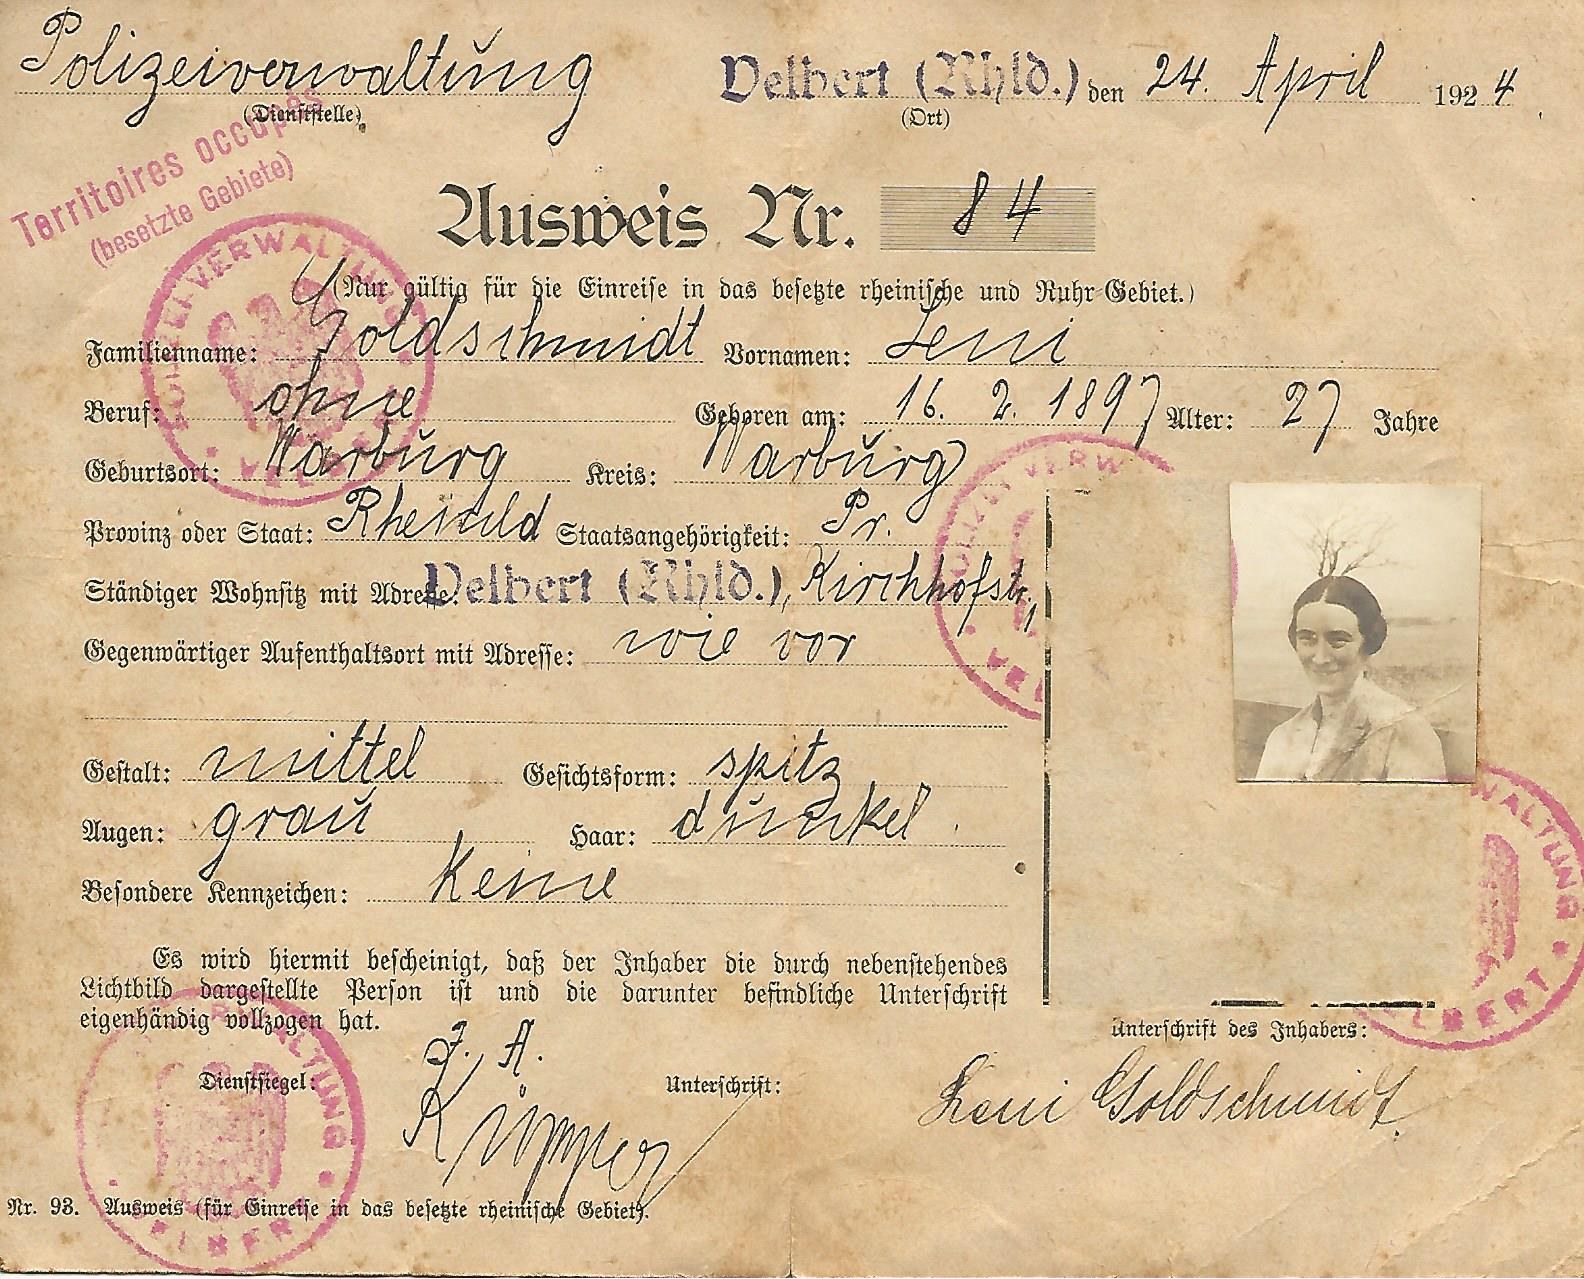 Polizeiverwaltung Velbert (Rhld.) den 24. April 1924
(Dienststelle) (Ort)
Territoires occupés
(besetzte Gebiete)
Ausweis Nr. 84
(Nur gültig für die Einreise in das besetzte rheinische und Ruhr-Gebiet.)
Familienname: Goldschmidt Vornamen: Leni
Beruf: ohne Geboren am: 16. 2. 1897 Alter: 27 Jahre
Geburtsort: Warburg Kreis: Warburg
Provinz oder Staat: Rheinld Staatsangehörigkeit: Pr.
Ständiger Wohnsitz mit Adresse: Velbert (Rhld.), Kirchhofstr,
Gegenwärtiger Aufenthaltsort mit Adresse: wie vor
Gestalt: mittel Gesichtsform: spitz
Augen: grau Haar: dunkel.
Besondere Kennzeichen: keine
Es wird hiermit bescheinigt, daß der Inhaber die durch nebenstehendes
Lichtbild dargestellte Person ist und die darunter befindliche Unterschrift
eigenhändig vollzogen hat.
Unterschrift des Inhabers:
J. A.
Dienstsiegel: Küpper Unterschrift:
Leni Goldschmidt.
Nr. 93. Ausweis (für Einreise in das besetzte rheinische Gebiet).
POLIZEI-VERWALTUNG
* VELBERT *
POLIZEI-VERWALTUNG
* VELBERT *
POLIZEI-VERWALTUNG
* VELBERT *